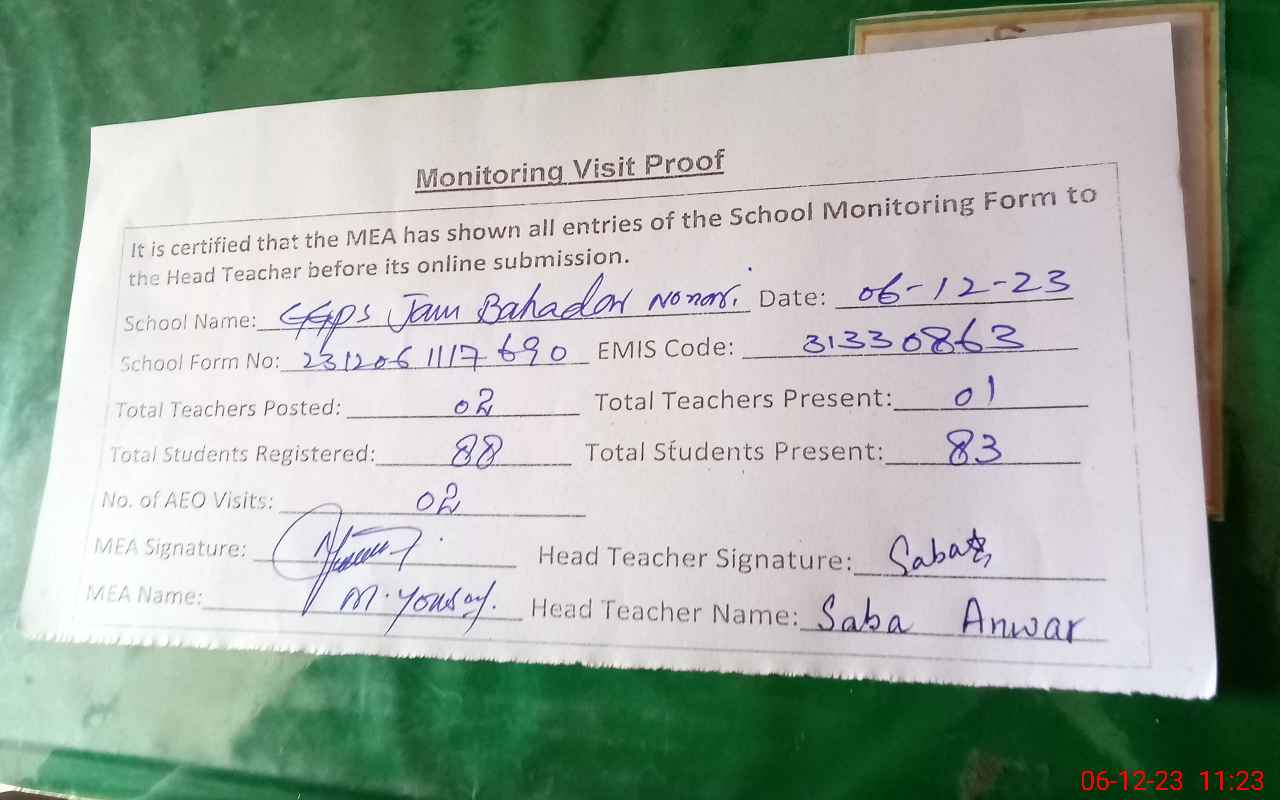 Monitoring Visit Proof
It is certified that the MEA has shown all entries of the School Monitoring Form to
the Head Teacher before its online submission.
School Name: GGPS Jam Bahadar Nonari. Date: 06-12-23
School Form No: 2312061117690 EMIS Code: 31330863
Total Teachers Posted: 02 Total Teachers Present: 01
Total Students Registered: 88 Total Students Present: 83
No. of AEO Visits: 02
MEA Signature: Head Teacher Signature: Saba
MEA Name: M. Yousaf. Head Teacher Name: Saba Anwar
06-12-23 11:23